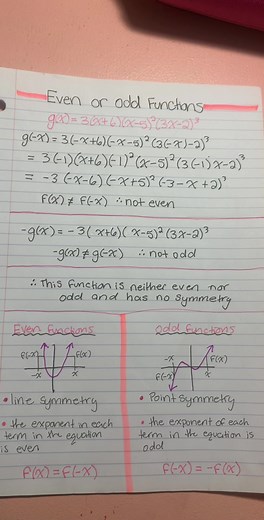 Even or odd Functions
g(x) = 3(x+6)(x-5)²(3x-2)³
g(-x) = 3(-x+6)(-x-5)²(3(-x)-2)³
= 3(-1)(x+6)(-1)²(x-5)²(3(-1)x-2)³
= -3(-x-6)(-x+5)²(-3-x+2)³
f(x) ≠ f(-x) ∴ not even
-g(x) = -3(x+6)(x-5)²(3x-2)³
-g(x) ≠ g(-x) ∴ not odd
∴ This function is neither even nor
odd and has no symmetry
Even Functions
f(-x) f(x)
-x x
• line symmetry
• the exponent in each
term in the equation
is even
f(x) = f(-x)
odd functions
-x f(x)
f(-x) x
• Point symmetry
• the exponent of each
term in the equation is
odd
f(-x) = -f(x)